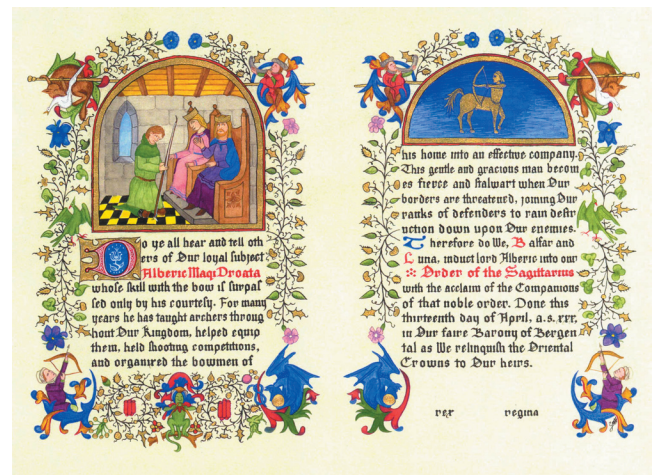 Do ye all hear and tell oth
ers of Our loyal subject
Alberic Maqi Droata
whose skill with the bow is surpas
sed only by his courtesy. For many
years he has taught archers throug
hout Our Kingdom, helped equip
them, held shooting competitions,
and organized the bowmen of
his home into an effective company.
This gentle and gracious man becom
es fierce and stalwart when Our
borders are threatened, joining Our
ranks of defenders to rain destr
uction down upon Our enemies.
Therefore do We, Balfar and
Luna, induct lord Alberic into our
Order of the Sagittarius
with the acclaim of the Companions
of that noble order. Done this
thirteenth day of April, a.s. xxx.
in Our faire Barony of Bergen
tal as We relinquish the Oriental
Crowns to Our heirs.
rex regina